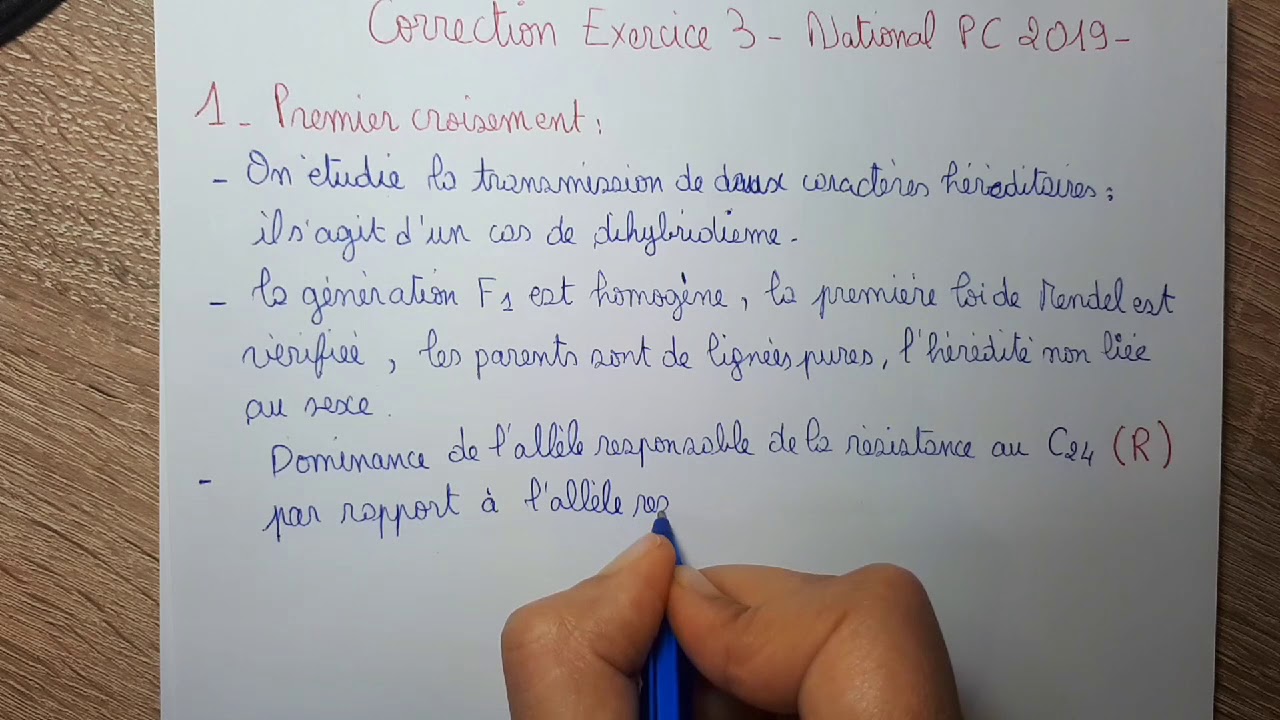 Correction Exercice 3 - National PC 2019 -
1 - Premier croisement :
- On étudie la transmission de deux caractères héréditaires :
il s'agit d'un cas de dihybridisme.
- la génération F1 est homogène, la première loi de Mendel est
vérifiée, les parents sont de lignées pures, l'hérédité non liée
au sexe.
- Dominance de l'allèle responsable de la résistance au C24 (R)
par rapport à l'allèle res